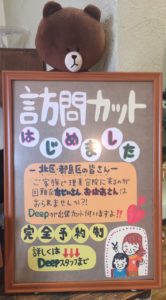 訪問カット
はじめました
－北区・都島区の皆さん－
ご家族で理美容院に来るのが
困難なおじいさん おばあさんは
おられませんか?!
Deepが出張カット伺いますよ!!
完全予約制
詳しくは↓↓↓
Deepスタッフまで